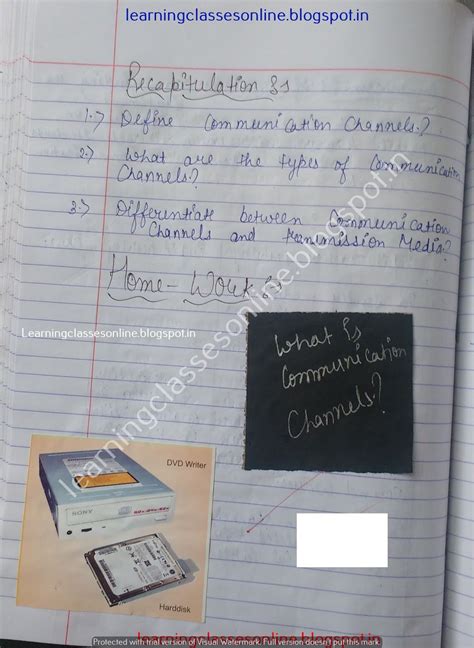 learningclassesonline.blogspot.in
Recapitulation :-
1.) Define Communication Channels.?
2.) What are the types of Communication
Channels.?
3.) Differentiate between Communication
Channels and transmission Media.?
Home-Work :-
Learningclassesonline.blogspot.in
learningclassesonline.blogspot.in
What is
Communication
Channels.?
DVD Writer
SONY
Harddisk
learningclassesonline.blogspot.in
Protected with trial version of Visual Watermark. Full version doesn't put this mark.